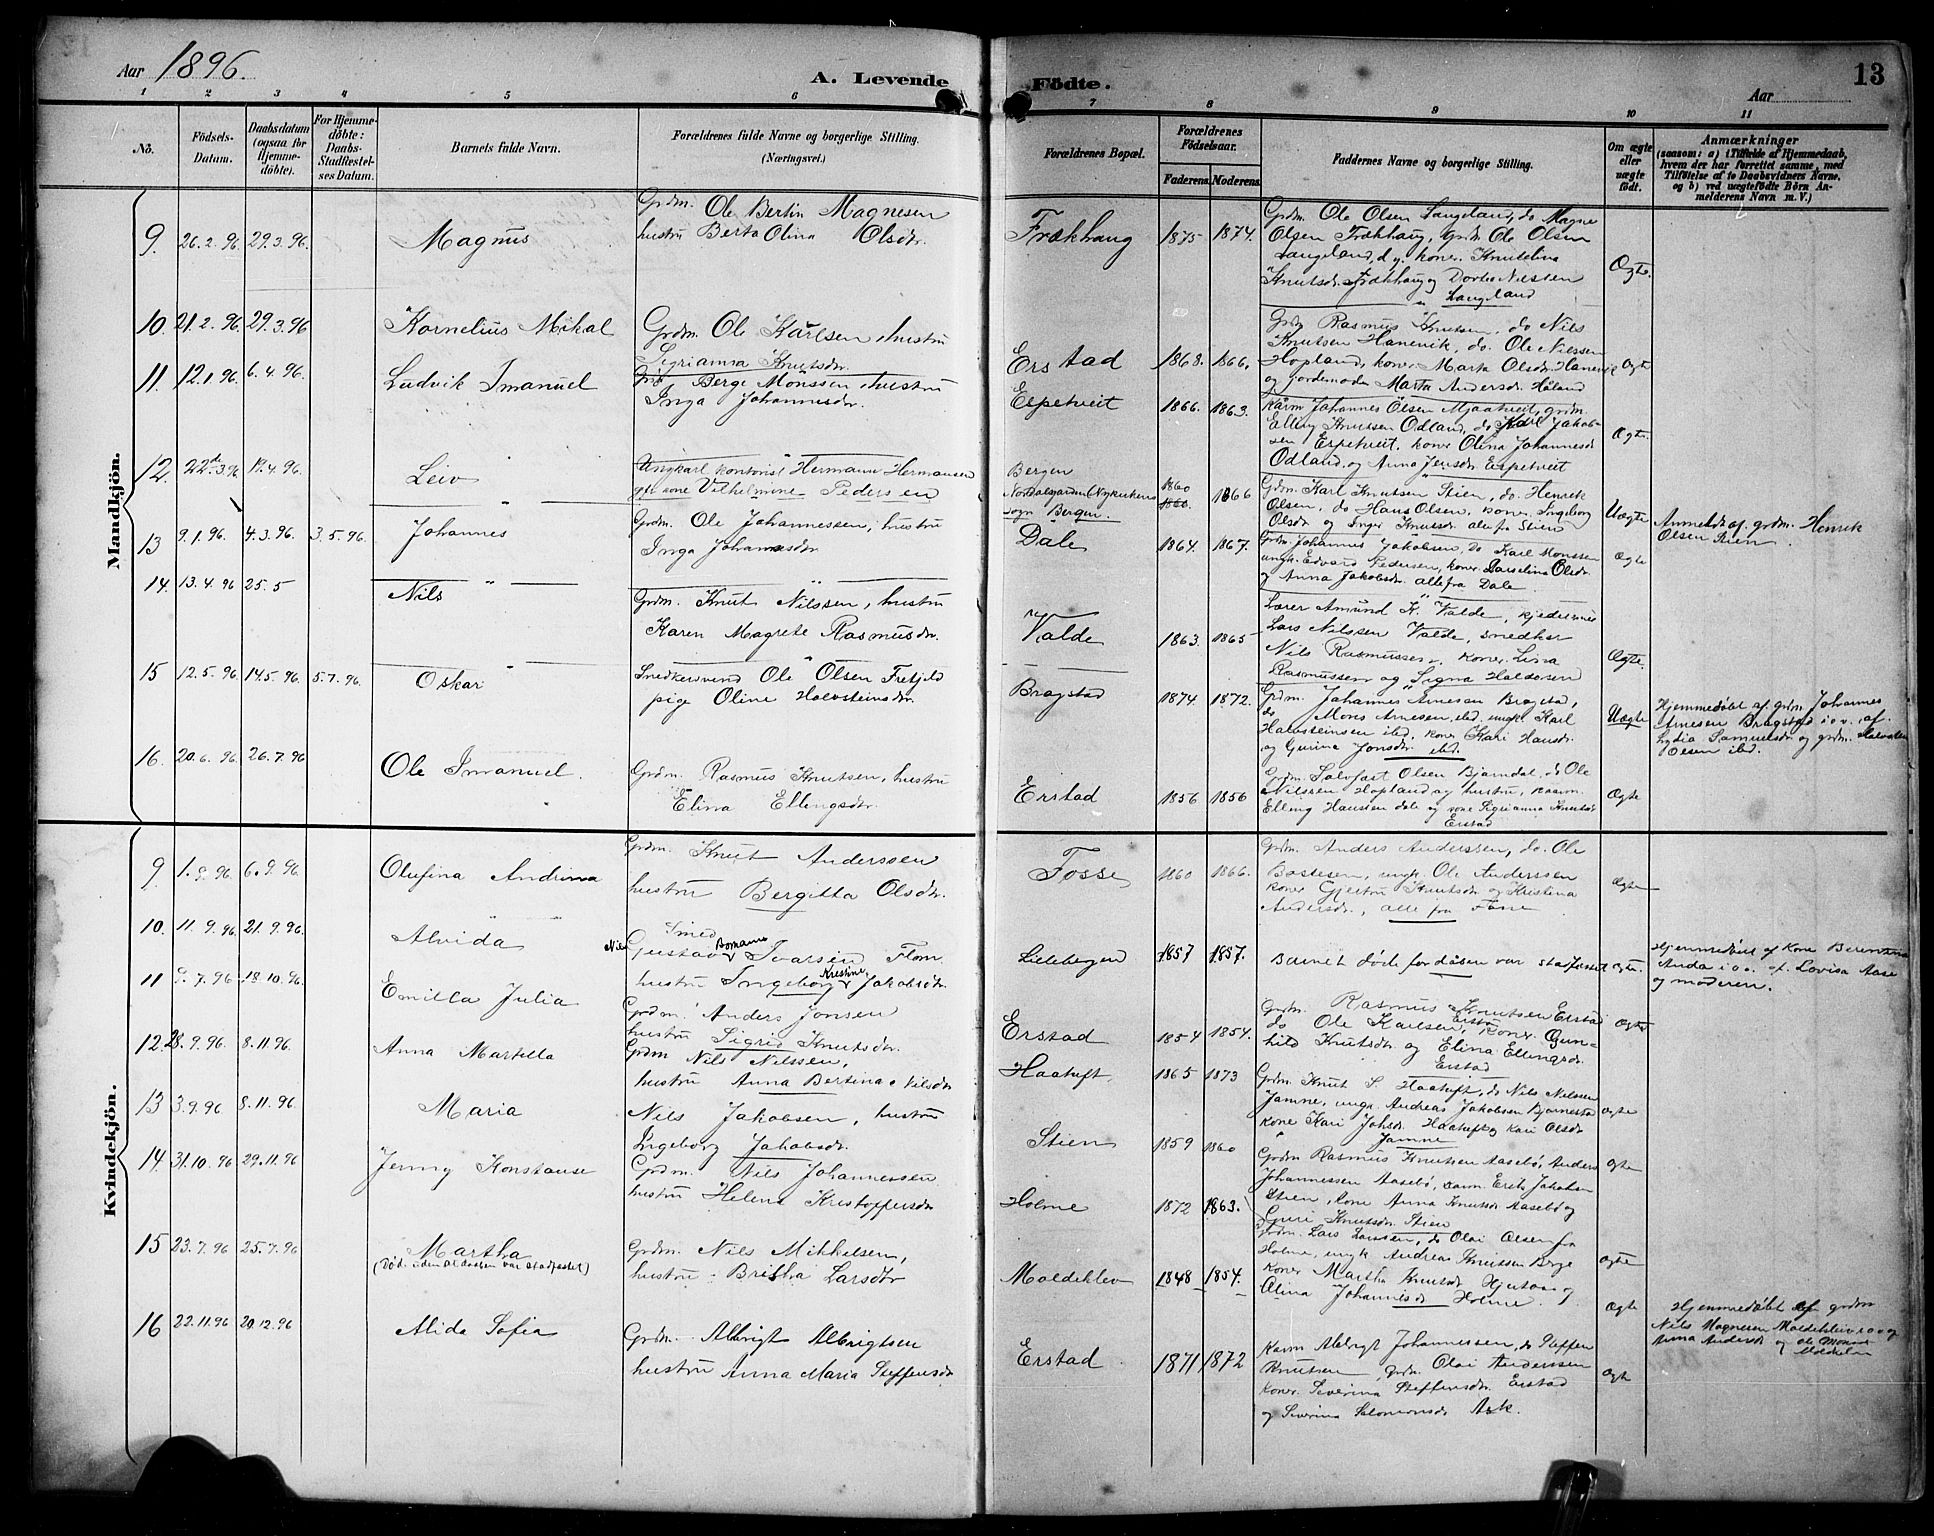 Aar 1896.
A. Levende
Födte.
13
Aar
1 2 3 4 5 6 7 8 9 10 11
No.
Födsels-Datum.
Daabsdatum (ogsaa for Hjemmedöbte).
For Hjemmedöbte: Daabs-Stadfæstelses Datum.
Barnets fulde Navn.
Forældrenes fulde Navne og borgerlige Stilling.
(Næringsvei.)
Forældrenes Bopæl.
Forældrenes Födselsaar.
Faderens. Moderens.
Faddernes Navne og borgerlige Stilling.
Om ægte eller uægte födt.
Anmærkninger
(saasom: a) i Tilfælde af Hjemmedaab, hvem der har forrettet samme, med Tilföielse af to Daabsvidners Navne, og b) ved uægtefödte Börn Anmelderens Navn m. V.)
Mandkjön.
9 26.2.96 29.3.96. Magnus
Grdm. Ole Bertin Magnesen
hustru Berta Olina Olsdr.
Frækhaug 1875 1874.
Grdm. Ole Olsen Langeland, do Magne
Olsen Frækhaug, grdm Ole Olsen
Langeland, d.y. koner. Knutelina
Knutsdr. Frækhaug og Dorte Nilsten
Langeland
Ægte.
10 21.2.96 29.3.96 Kornelius Mikal
Grdm. Ole Karlsen, hustru
Sigrianna Knutsdr.
Erstad 1868. 1866.
Grdm Rasmus Knutsen, do Nils
Knutsen Hanevik, do. Ole Nilssen
Hopland, koner Marta Olsdr. Hanevik
og jordemoder Marta Andersdr. Håland
Ægte
11. 12.1.96. 6.4.96. Ludvik Imanuel
Berge Monssen, hustru
Inga Johannesdr.
Espetveit 1866. 1863.
Kårm Johannes Olsen Mjaatveit, grdm.
Elling Knutsen Odland, do Karl Jakobsen
Espetveit, koner Olina Johannesdr
Odland og Anna Jensdr. Espetveit
Ægte.
12 22de 3 96 19.4.96. Leiv
Ungkarl kontorist Hermann Hermansen
kone Vilhelmine Pedersen
Bergen
Nykirkens
sogn Bergen.
1860 1866
Grdm. Karl Knutsen Stien, do. Henrik
Olsen, do Hans Olsen, koner. Ingeborg
Olsdr og Inger Knutsdr alle fra Stien
Uægte
Anmeldt af grdm. Henrik
Olsen Stien.
13 9.1.96. 4.3.96. 3.5.96. Johannes
Grdm. Ole Johannessen, hustru
Inga Johannesdr
Dale 1864. 1867.
Grdm. Johannes Jakobsen, do Karl Monssen
ungk. Edvard Pedersen, koner Olsdr.
og Anna Jakobsdr. alle fra Dale
Ægte
14. 13.4.96 25.5 Nils
Grdm. Knut Nilssen, hustru
Karen Magrete Rasmusdr.
Valde 1863. 1865
Lærer Amund K. Valde,
Lars Nilssen Valde, snedker
Nils Rasmussen, koner Lina
Rasmussen og Signa Haldorsen
Ægte.
15 12.5.96 14.5.96 5.7.96. Oskar
Snedkersvend Ole Olsen
pige Oline Halvsteinsdr.
Bragstad 1874. 1872.
Grdm. Johannes Arnesen Bragstad,
do Mons Arnesen, ibd, ungk. Karl
Halvsteinsen ibd. koner Kari Hansdr.
og Gurina Jonsdr. ibd.
Uægte
Hjemmedøbt af grdm Johannes
Arnesen Bragstad i o. v. af.
Lydia Samuelsdr og grdm. Halvsten
Olsen ibd.
16. 20.6.96. 26.7.96 Ole Imanuel.
Grdm. Rasmus Knutsen, hustru
Elina Ellingsdr.
Erstad 1856 1856
Grdm. Salvfast Olsen Bjørndal, do Ole
Nilssen Hopland og hustru, kaarm.
Elling Hanssen Dale og kone Sigrianna Knutsdr
Erstad
Ægte
Kvindekjön.
9 6.9.96. Olufina Andrina
Grdm. Knut Anderssen
hustru Bergitta Olsdr.
Fosse 1860 1866.
Grdm. Anders Anderssen, do. Ole
ungk. Ole Anderssen
koner Gjertru Knutsdr og Kristina
Andersdr., alle fra
Ægte
10. 11.9.96. 21.9.96. Alvida
Smed
Nils Gustav Romanus Ivarsen
hustru Ingeborg Kristine Jakobsdr.
1857 1857.
Barnet døde før dåben var stadfestet
Ægte.
Hjemmedøbt af kone Berentina
Anda i o. v. af. Lovisa Aase
og moderen.
11 9.7.96 18.10.96. Emilla Julia
Grdm. Anders Jonsen
hustru Sigrid Knutsdr.
Erstad 1854 1854.
Grdm. Rasmus Knutsen Erstad
do Ole Karlsen, Erstad koner Gunhild
Knutsdr og Elina Ellingsdr.
Erstad
Ægte
12. 28.9.96 8.11.96. Anna Martella
Grdm Nils Nilssen,
hustru Anna Bertina Nilsdr
Haatuft, 1865 1873
Grdm. Knut S. Haatuft, do Nils Nilssen
Jamne, ungk. Andreas Jakobsen
kone Kari Johsdr. Haatuft og Kari Olsdr
Jamne
Ægte
13 3.9.96. 8.11.96. Maria
Nils Jakobsen, hustru
Ingeborg Jakobsdr.
Stien 1859 1860
Grdm Rasmus Knutsen Aasebø, Anders
Johannessen Aasebø, kaarm. Erik Jakobsen
Stien, kone Anna Knutsdr Aasebø og
Guri Knutsdr Stien
Ægte
14. 31.10.96 29.11.96 Jenny Konstanse
Grdm. Nils Johannessen
hustru Helene Kristoffersdr
Holme 1872 1863.
Grdm. Lars Larssen, do Olai Olsen fra
Holme, ungk. Andreas Knutssen Berge
koner Martha Knutsdr Hjertaas og
Olina Johannesdr Holme.
Ægte
15 23.7.96 25.7.96 Martha
(Død inden at daaben var stadfestet)
Grdm. Nils Mikkelsen,
hustru Britha Larsdr
Moldeklev 1848 1854.
Ægte
Hjemmedøbt af grdm
Nils Magnesen Moldeklev i o v af
Anna Andersdr og Ole Monsen
Moldeklev
16 22.11.96 20.12.96 Alida Sofia
Grdm. Albrigt Albrigtsen
hustru Anna Maria Steffensdr
Erstad. 1871 1872
Kaarm Albrigt Johannessen, do Steffen
Knutsen, Grdm. Olai Anderssen
koner. Severina Steffensdr. Erstad
og Severina Salomonsdr Ask.
Ægte